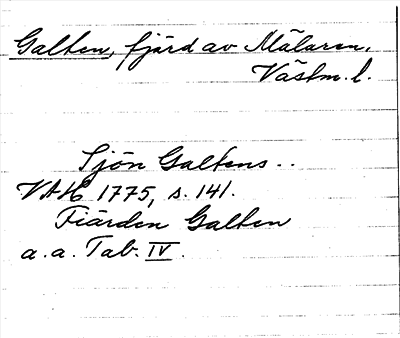 Galten, fjärd av Mälaren,
Västm. l.
Sjön Galtens..
VAH 1775, s. 141.
Fiärden Galten
a. a. Tab. IV.